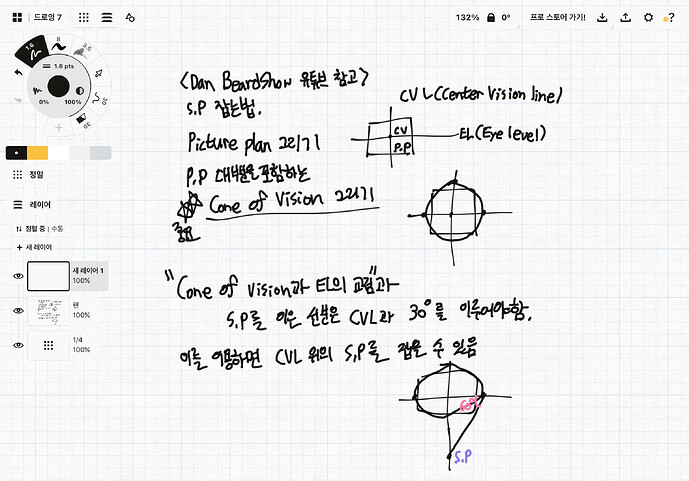 드로잉 7
132%
0°
프로 스토어 가기!
1.6
8
3.5
1.6 pts
0%
100%
30
30
<Dan Beardshow 유튜브 참고>
S.P 잡는법.
CVL(Center Vision line)
Picture plan 그리기
CV
EL(Eye level)
P.P
P.P 대부분을 포함하는
Cone of Vision 그리기
중요
정밀
레이어
정렬 중 | 수동
새 레이어
새 레이어 1
100%
펜
100%
1/4
100%
"Cone of Vision과 EL의 교점"과
S.P를 이은 선분은 CVL과 30°를 이루어야함.
이를 이용하면 CVL 위의 S.P를 잡을 수 있음
60°
S.P